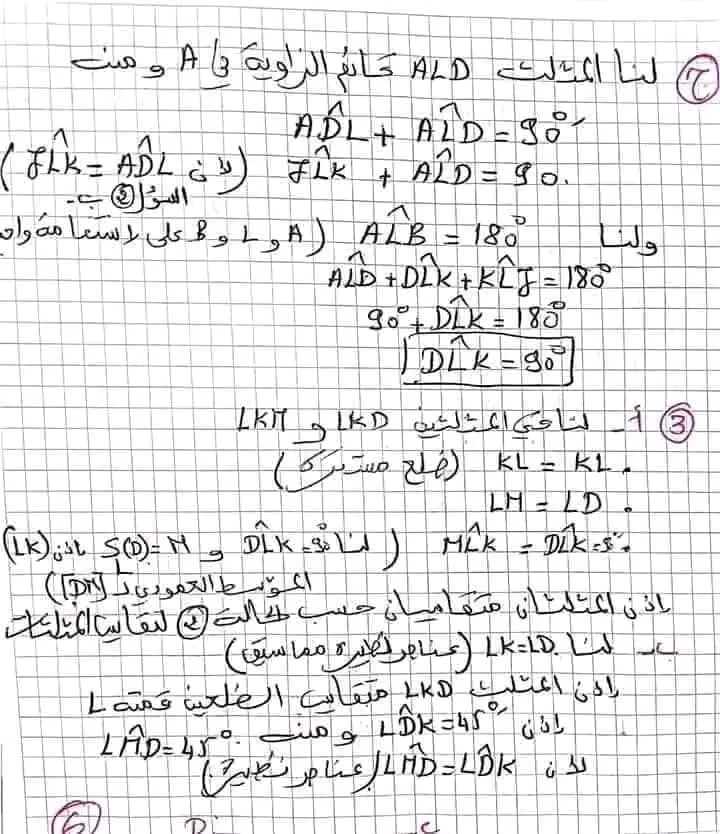 ج) لنا المثلث ALD قائم الزاوية في A ومنه
AD̂L + AL̂D = 90°
JL̂K + AL̂D = 90. (لأن JL̂K = AD̂L)
السؤال ② ب-
ولنا AL̂B = 180° (A و L و B على استقامة واحدة
AL̂D + DL̂K + KL̂J = 180°
90° + DL̂K = 180°
DL̂K = 90°
③ أ- لنا في المثلثين LKD و LKM
. KL = KL (ضلع مشترك)
. LM = LD
. ML̂K = DL̂K = 90° (لنا DL̂K = 90° و S(D) = M إذن (LK)
المتوسط العمودي لـ [DM])
إذن المثلثان متقايسان حسب الحالة ② لتقايس المثلثات
ب- لنا LK = LD. (عناصر نظيرة مما سبق)
إذن المثلث LKD متقايس الضلعين قمته L
إذن LD̂K = 45° ومنه LM̂D = 45°.
لأن LM̂D = LD̂K (عناصر نظيرة)
⑥